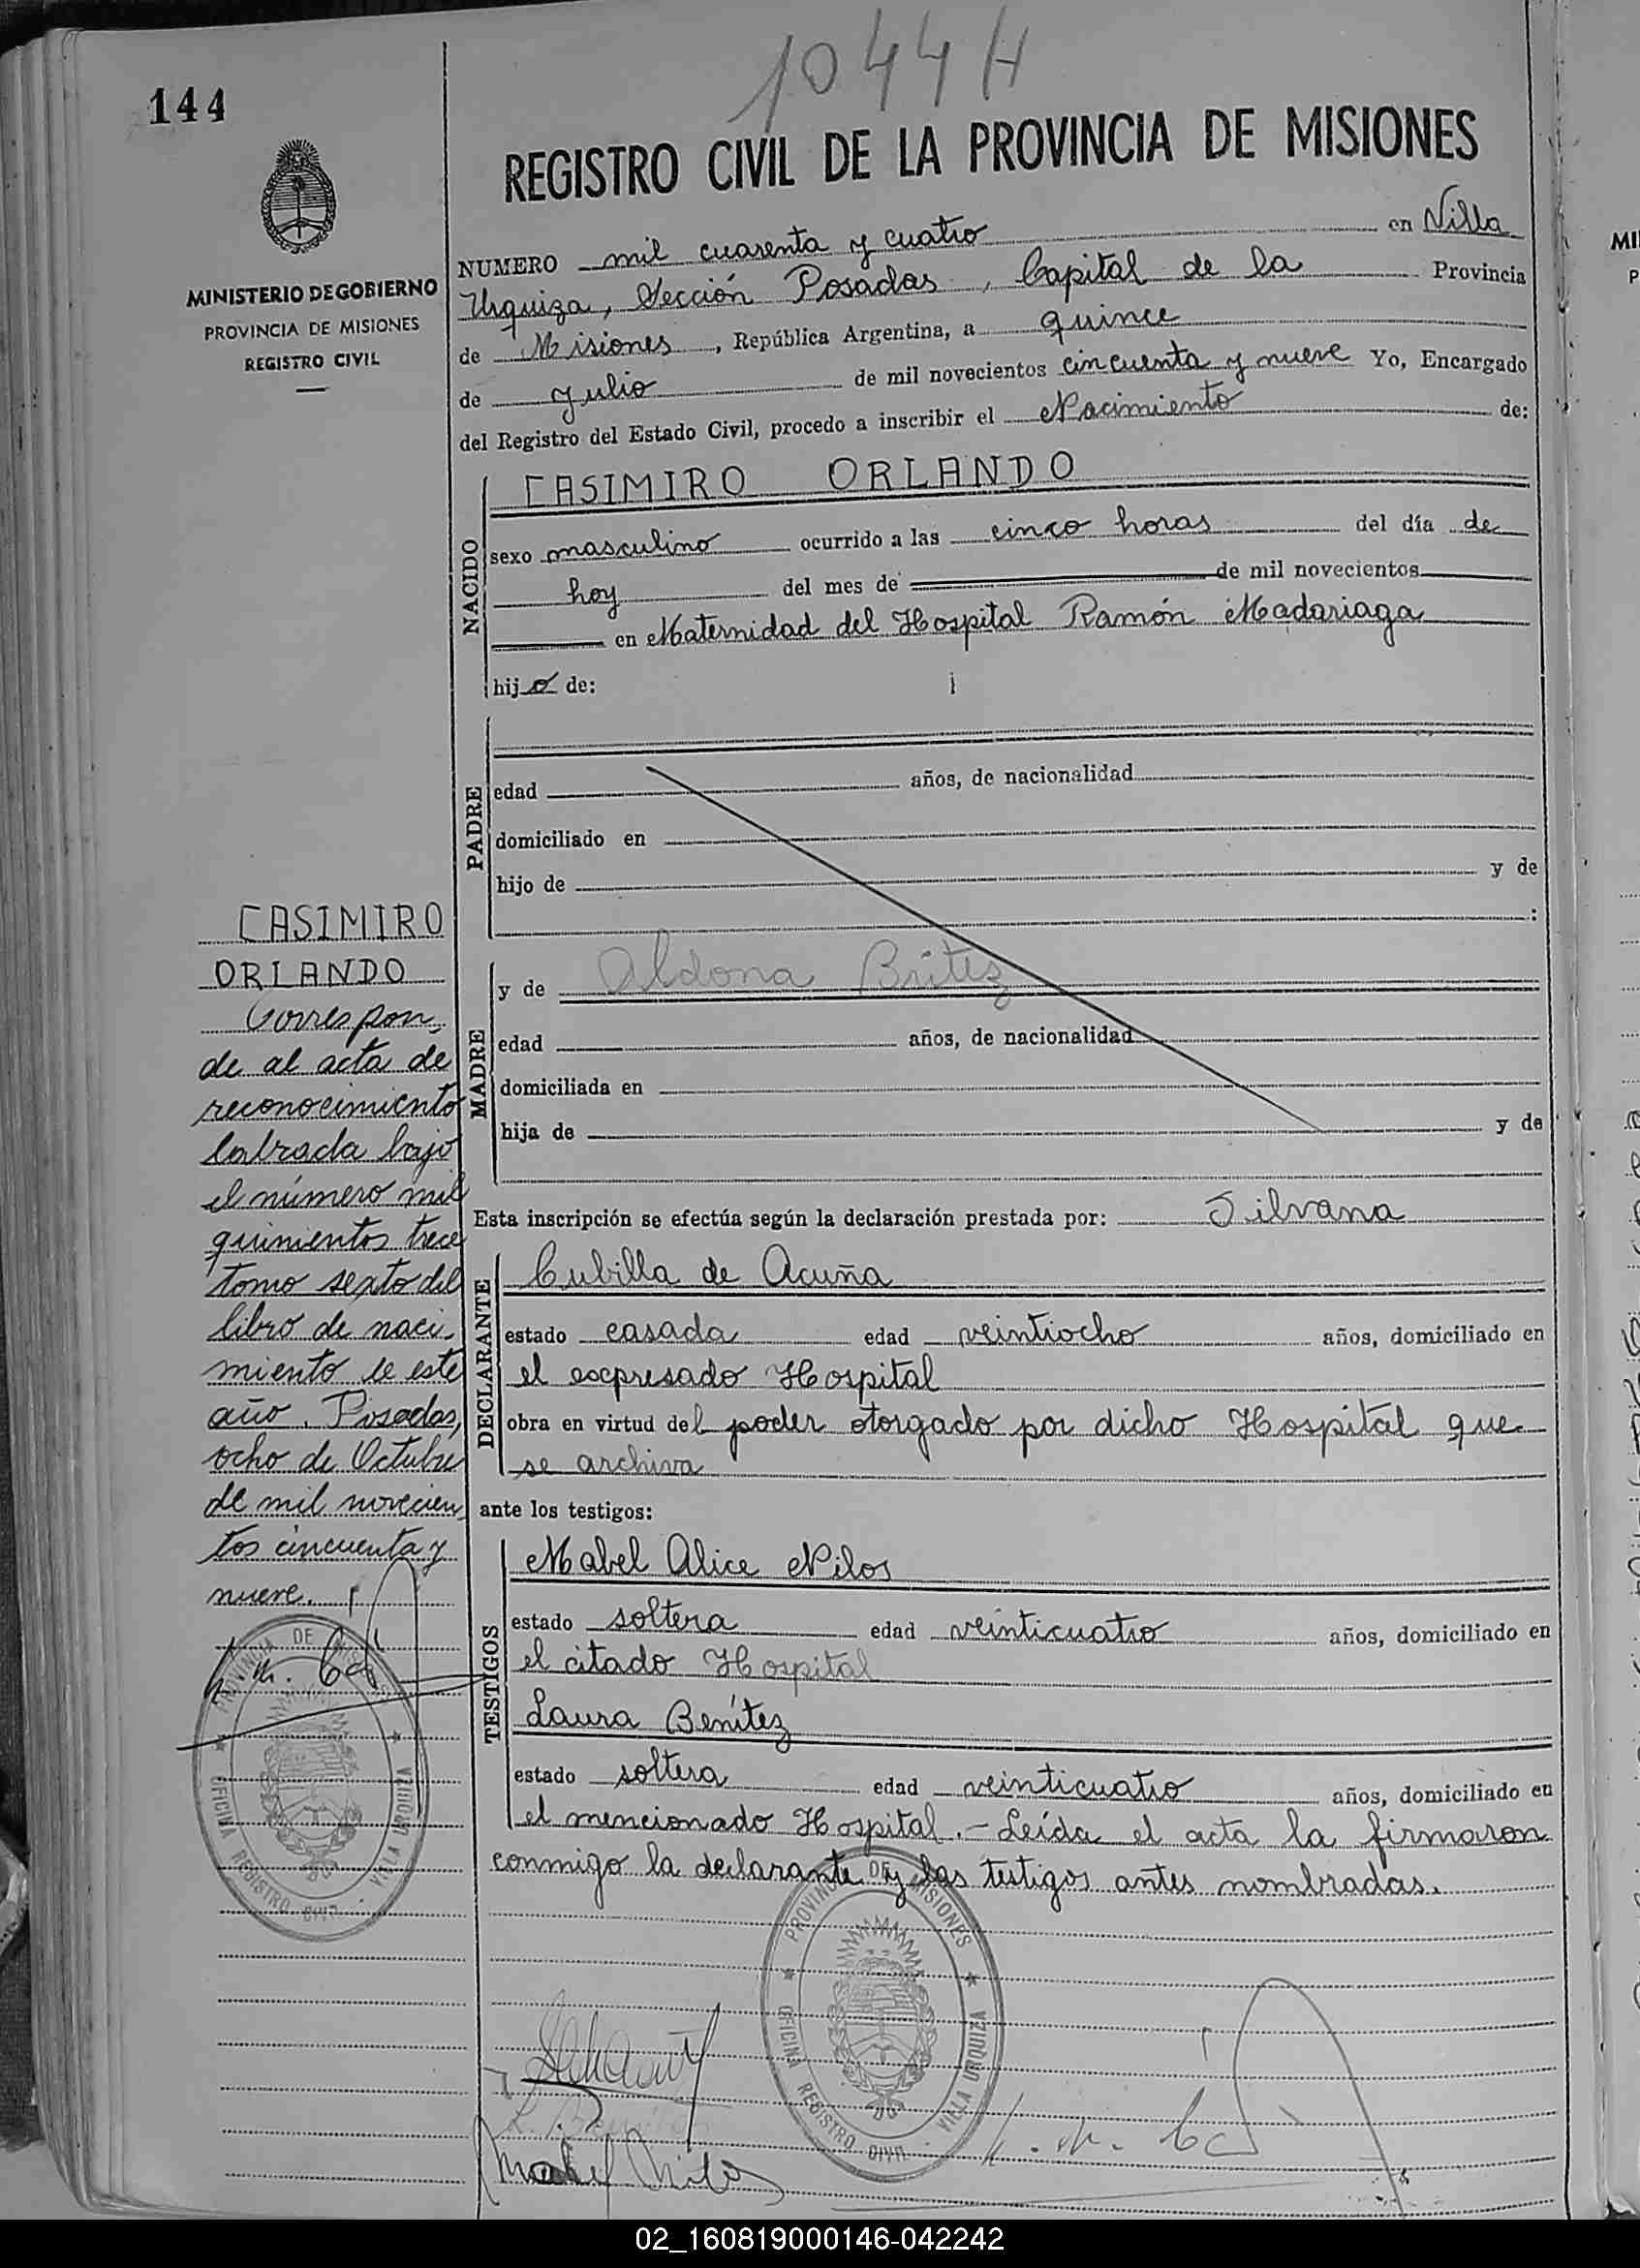 1044 H
144
REGISTRO CIVIL DE LA PROVINCIA DE MISIONES
MINISTERIO DE GOBIERNO
PROVINCIA DE MISIONES
REGISTRO CIVIL
NUMERO mil cuarenta y cuatro en Villa
Urquiza, Sección Posadas, Capital de la Provincia
de Misiones, República Argentina, a quince
de Julio de mil novecientos cincuenta y nueve Yo, Encargado
del Registro del Estado Civil, procedo a inscribir el Nacimiento de:
NACIDO
CASIMIRO ORLANDO
sexo masculino ocurrido a las cinco horas del día de
hoy del mes de de mil novecientos
en Maternidad del Hospital Ramón Madariaga
hijo de:
PADRE
edad años, de nacionalidad
domiciliado en
hijo de y de
:
MADRE
y de Aldona Britez
edad años, de nacionalidad
domiciliada en
hija de y de
Esta inscripción se efectúa según la declaración prestada por: Silvana
DECLARANTE
Cubilla de Acuña
estado casada edad veintiocho años, domiciliado en
el expresado Hospital
obra en virtud del poder otorgado por dicho Hospital que
se archiva
ante los testigos:
TESTIGOS
Mabel Alice Nilos
estado soltera edad veinticuatro años, domiciliado en
el citado Hospital
Laura Benítez
estado soltera edad veinticuatro años, domiciliado en
el mencionado Hospital.- Leída el acta la firmaron
conmigo la declarante y las testigos antes nombradas.
CASIMIRO
ORLANDO
Correspon-
de al acta de
reconocimiento
labrada bajo
el número mil
quinientos trece
tomo sexto del
libro de naci-
miento de este
año. Posadas,
ocho de Octubre
de mil novecien
tos cincuenta y
nueve.
PROVINCIA DE MISIONES
OFICINA REGISTRO CIVIL - VILLA URQUIZA
PROVINCIA DE MISIONES
OFICINA REGISTRO CIVIL - VILLA URQUIZA
Mabel Nilos
02_160819000146-042242